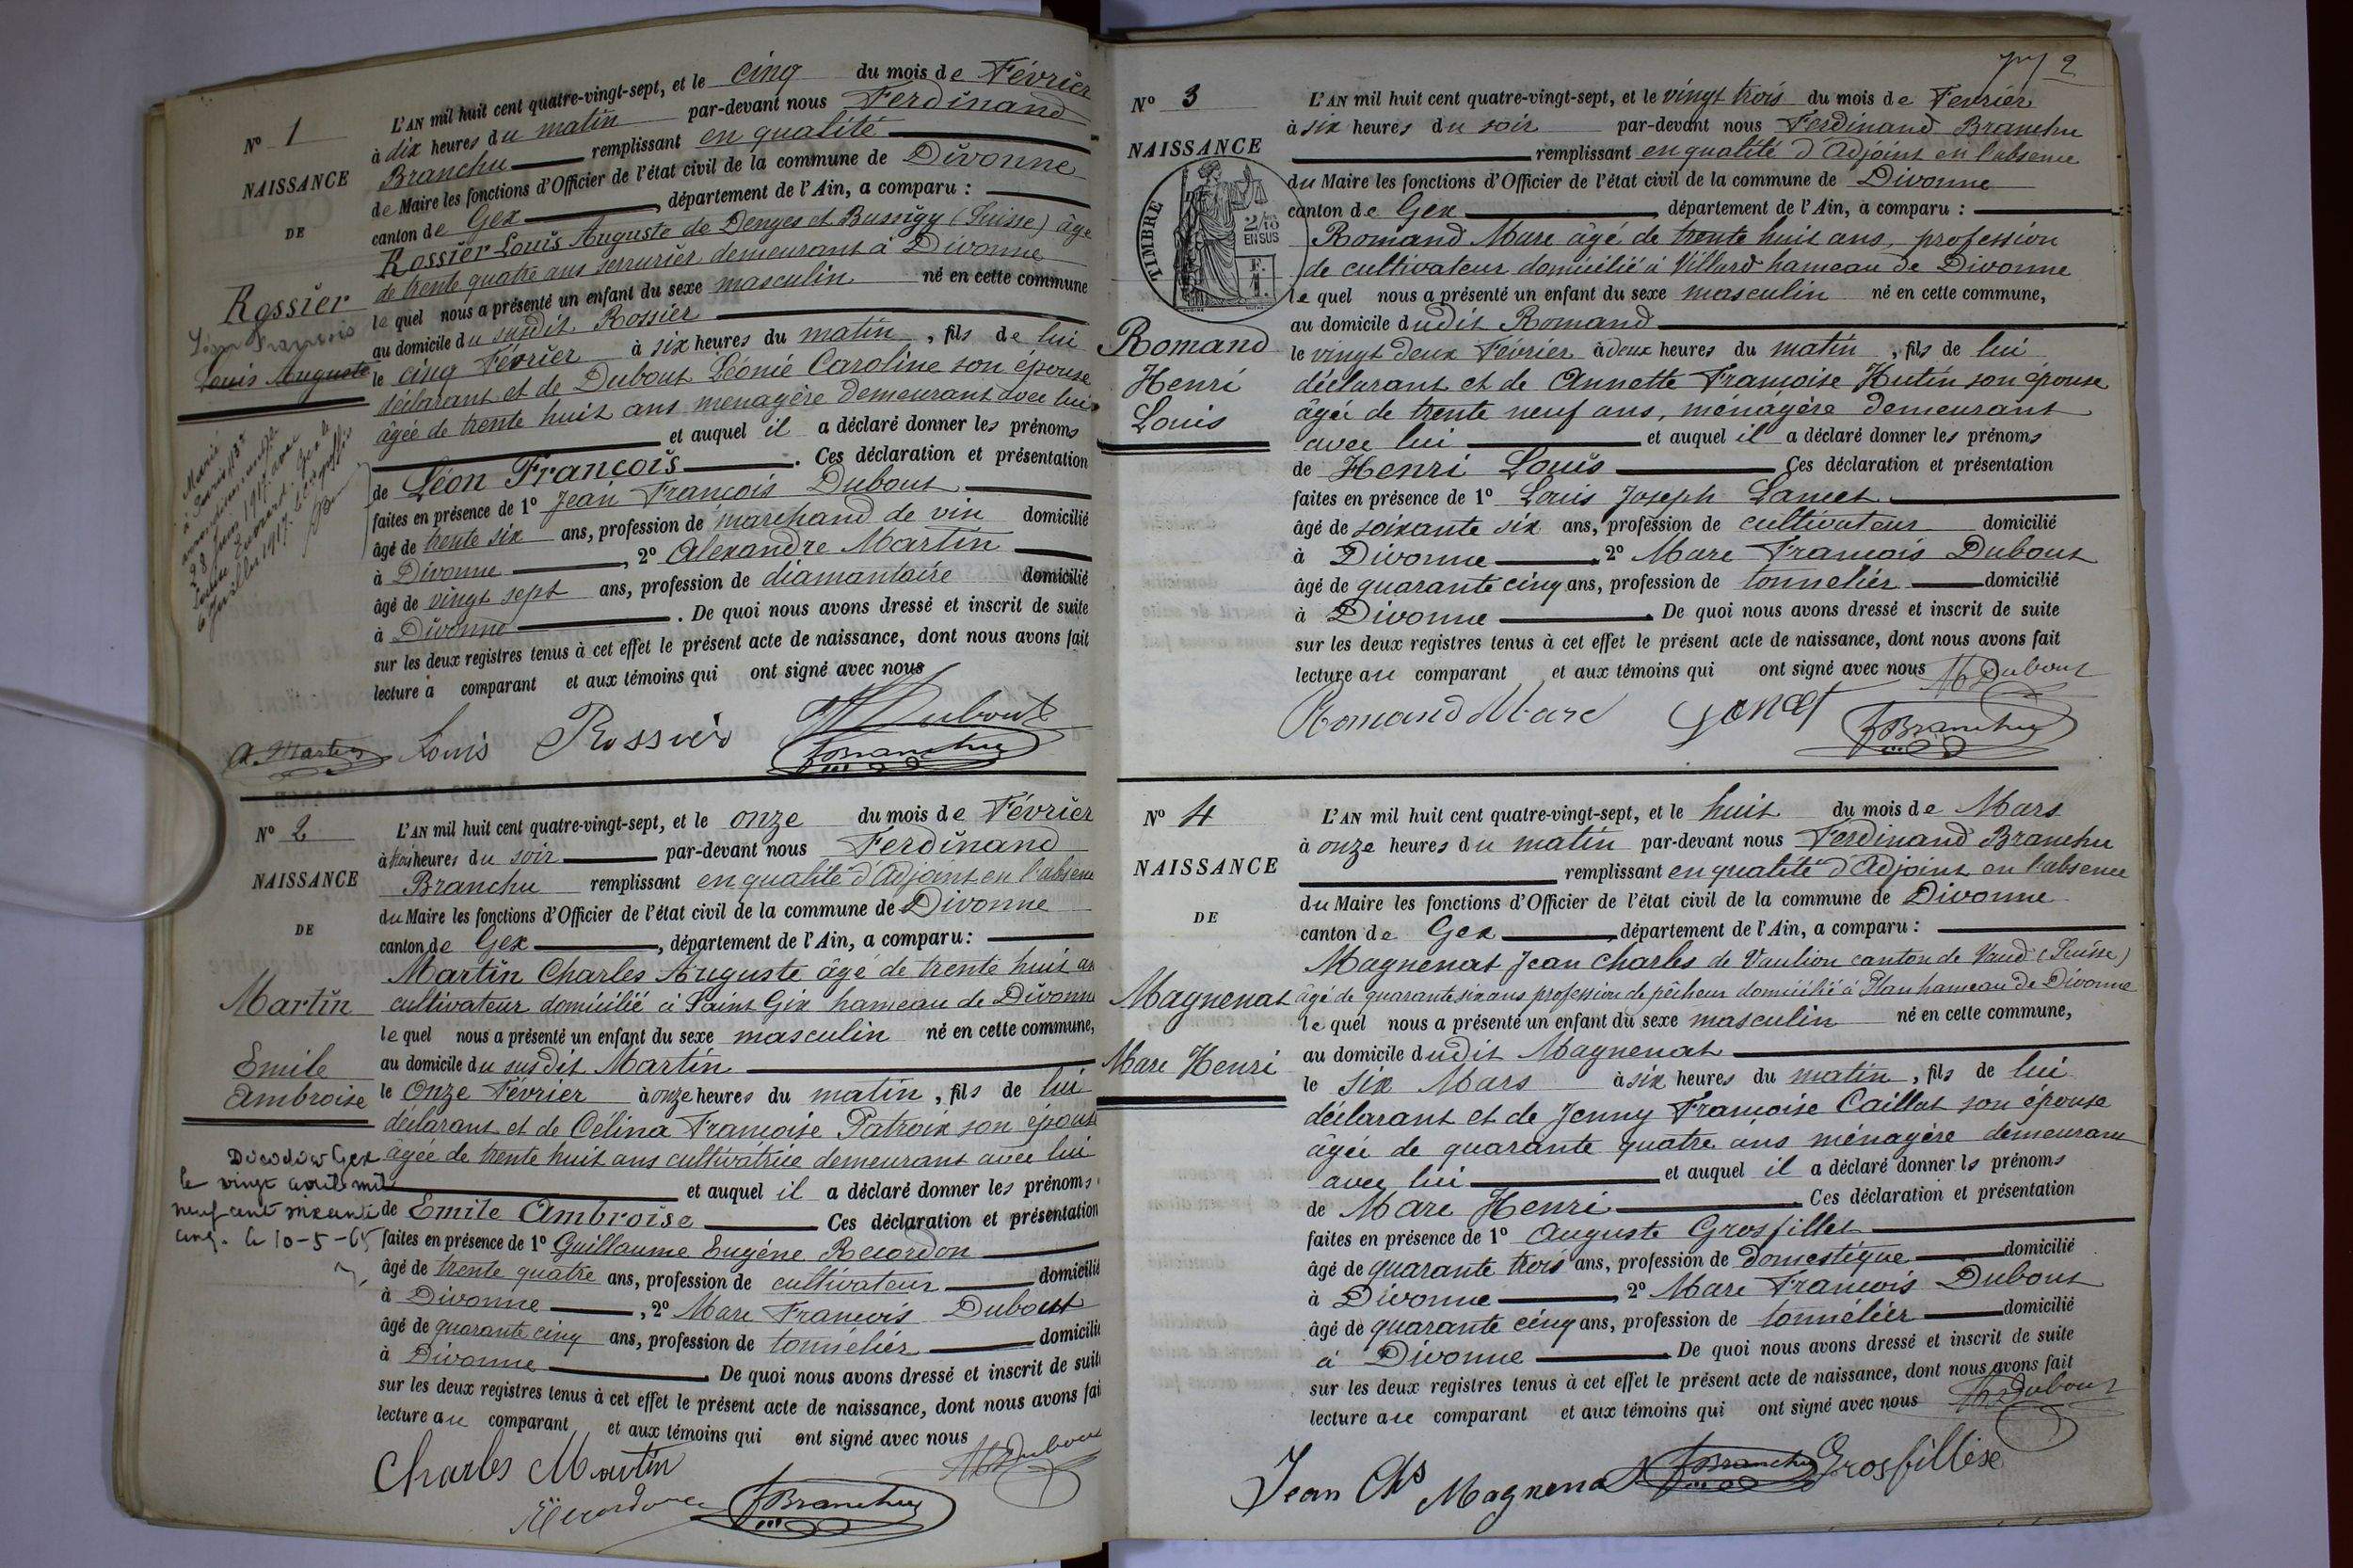 N° 1
NAISSANCE
DE
Rossier
Léon François
Louis Auguste
Marié
à Paris 13e
28 juin 1917 avec
L'AN mil huit cent quatre-vingt-sept, et le cinq du mois de Février
à dix heures du matin par-devant nous Ferdinand
Branchu remplissant en qualité
de Maire les fonctions d'Officier de l'état civil de la commune de Divonne
canton de Gex, département de l'Ain, a comparu :
Rossier Louis Auguste de Denges et Bussigy (Suisse) âgé
de trente quatre ans serrurier demeurant à Divonne
lequel nous a présenté un enfant du sexe masculin né en cette commune
au domicile du susdit Rossier
le cinq Février à six heures du matin, fils de lui
déclarant et de Dubout Léonie Caroline son épouse
âgée de trente huit ans menagère demeurant avec lui
et auquel il a déclaré donner les prénoms
de Léon François. Ces déclaration et présentation
faites en présence de 1° Jean François Dubout
âgé de trente six ans, profession de marchand de vin domicilié
à Divonne, 2° Alexandre Martin
âgé de vingt sept ans, profession de diamantaire domicilié
à Divonne. De quoi nous avons dressé et inscrit de suite
sur les deux registres tenus à cet effet le présent acte de naissance, dont nous avons fait
lecture a comparant et aux témoins qui ont signé avec nous
A. Martin Louis Rossier Dubout
FBranchu
N° 2
NAISSANCE
DE
Martin
Emile
Ambroise
Décédé à Gex
le vingt avril mil
neuf cent soixante
cinq. le 10-5-65
L'AN mil huit cent quatre-vingt-sept, et le onze du mois de Février
à trois heures du soir par-devant nous Ferdinand
Branchu remplissant en qualité d'Adjoint en l'absence
du Maire les fonctions d'Officier de l'état civil de la commune de Divonne
canton de Gex, département de l'Ain, a comparu :
Martin Charles Auguste âgé de trente huit an
cultivateur domicilié à Saint Gix hameau de Divonne
lequel nous a présenté un enfant du sexe masculin né en cette commune,
au domicile du susdit Martin
le Onze Février à onze heures du matin, fils de lui
déclarant et de Célina Françoise Patroix son épouse
âgée de trente huit ans cultivatrice demeurant avec lui
et auquel il a déclaré donner les prénoms
de Emile Ambroise Ces déclaration et présentation
faites en présence de 1° Guillaume Eugène Recordon
âgé de trente quatre ans, profession de cultivateur domicilié
à Divonne, 2° Marc François Dubout
âgé de quarante cinq ans, profession de tonnélier domicilié
à Divonne. De quoi nous avons dressé et inscrit de suite
sur les deux registres tenus à cet effet le présent acte de naissance, dont nous avons fai
lecture au comparant et aux témoins qui ont signé avec nous
Charles Martin MDubout
Recordon FBranchu
2
N° 3
NAISSANCE
TIMBRE
2/10
EN SUS
Romand
Henri
Louis
L'AN mil huit cent quatre-vingt-sept, et le vingt trois du mois de Fevrier
à six heures du soir par-devant nous Ferdinand Branchu
remplissant en qualité d'Adjoint en l'absence
du Maire les fonctions d'Officier de l'état civil de la commune de Divonne
canton de Gex, département de l'Ain, a comparu :
Romand Marc âgé de trente huit ans, profession
de cultivateur domicilié à Villard hameau de Divonne
lequel nous a présenté un enfant du sexe masculin né en cette commune,
au domicile dudit Romand
le vingt deux Février à deux heures du matin, fils de lui
déclarant et de Annette Françoise Hutin son épouse
âgée de trente neuf ans, ménagère demeurant
avec lui et auquel il a déclaré donner les prénoms
de Henri Louis Ces déclaration et présentation
faites en présence de 1° Louis Joseph Lancet
âgé de soixante six ans, profession de cultivateur domicilié
à Divonne 2° Marc François Dubout
âgé de quarante cinq ans, profession de tonnelier domicilié
à Divonne. De quoi nous avons dressé et inscrit de suite
sur les deux registres tenus à cet effet le présent acte de naissance, dont nous avons fait
lecture au comparant et aux témoins qui ont signé avec nous MDubout
Romand Marc FBranchu
N° 4
NAISSANCE
DE
Magnenat
Marc Henri
L'AN mil huit cent quatre-vingt-sept, et le huit du mois de Mars
à onze heures du matin par-devant nous Ferdinand Branchu
remplissant en qualité d'Adjoint en l'absence
du Maire les fonctions d'Officier de l'état civil de la commune de Divonne
canton de Gex, département de l'Ain, a comparu :
Magnenat Jean Charles de Vaulion canton de Vaud (Suisse)
âgé de quarante six ans profession de pêcheur domicilié à Plan hameau de Divonne
lequel nous a présenté un enfant du sexe masculin né en cette commune,
au domicile dudit Magnenat
le six Mars à six heures du matin, fils de lui
déclarant et de Jenny Françoise Caillat son épouse
âgée de quarante quatre ans ménagère demeurant
avec lui et auquel il a déclaré donner ls prénoms
de Marc Henri Ces déclaration et présentation
faites en présence de 1° Auguste Grosfillet
âgé de quarante trois ans, profession de domestique domicilié
à Divonne, 2° Marc François Dubout
âgé de quarante cinq ans, profession de tonnélier domicilié
à Divonne. De quoi nous avons dressé et inscrit de suite
sur les deux registres tenus à cet effet le présent acte de naissance, dont nous avons fait
lecture au comparant et aux témoins qui ont signé avec nous MDubout
Jean Chs Magnenat FBranchu Grosfillex